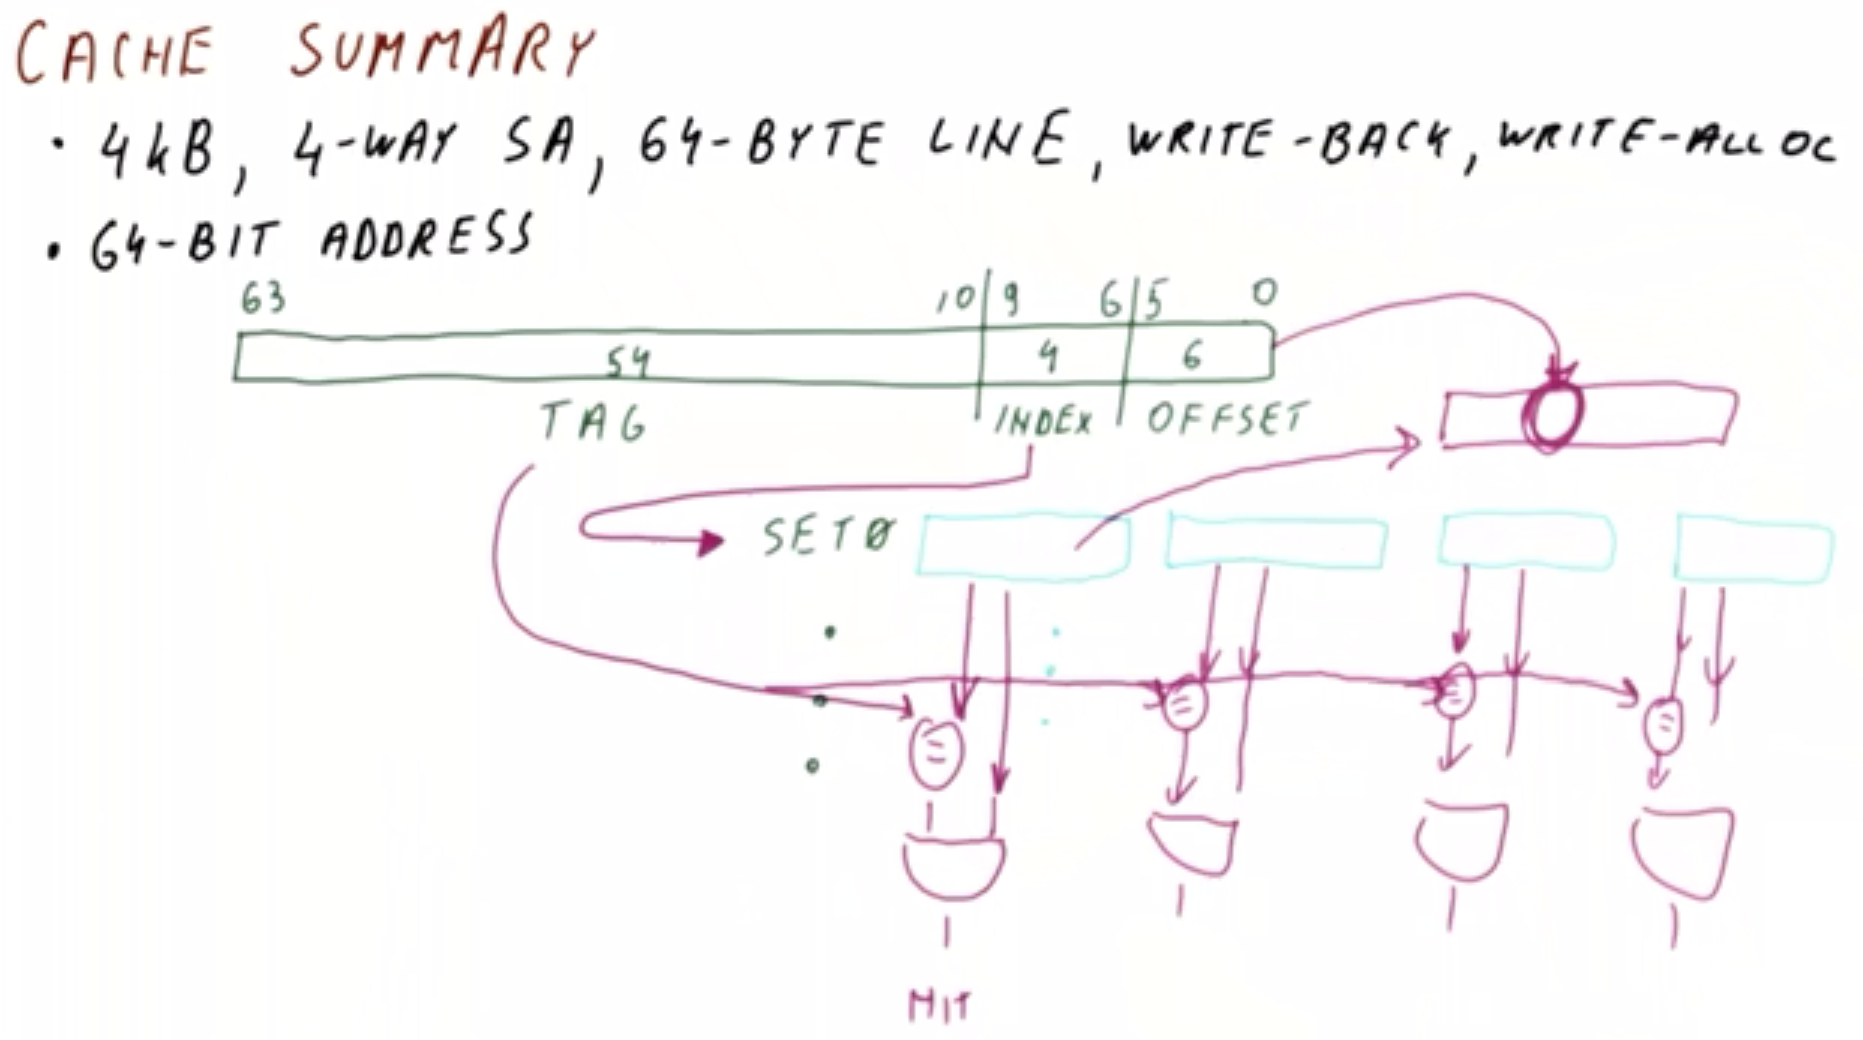 CACHE SUMMARY
• 4kB, 4-WAY SA, 64-BYTE LINE, WRITE-BACK, WRITE-ALLOC
• 64-BIT ADDRESS
63 10 9 6 5 0
54 4 6
TAG INDEX OFFSET
SET0
= = = =
HIT